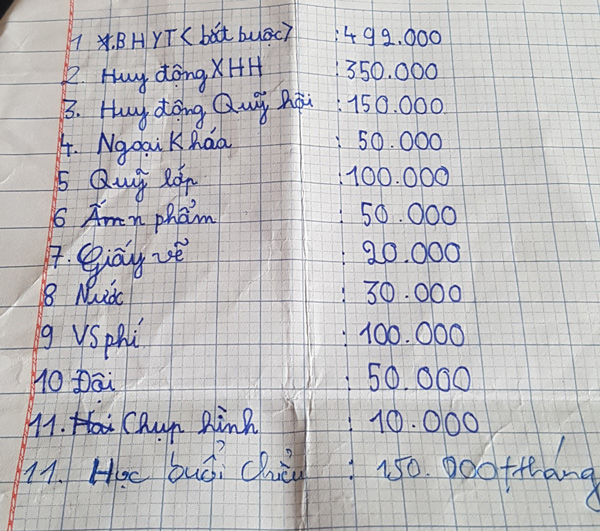 1 *.BHYT< bắt buộc> : 492.000
2. Huy động XHH : 350.000
3. Huy động Quỹ hội : 150.000
4. Ngoại Kháa : 50.000
5 Quỹ lớp : 100.000
6 Ấm n phẩm : 50.000
7. Giấy vẽ : 20.000
8 Nước : 30.000
9 VS phí : 100.000
10 Đội : 50.000
11. Chụp hình : 10.000
11. Học buổi chiều : 150.000+tháng